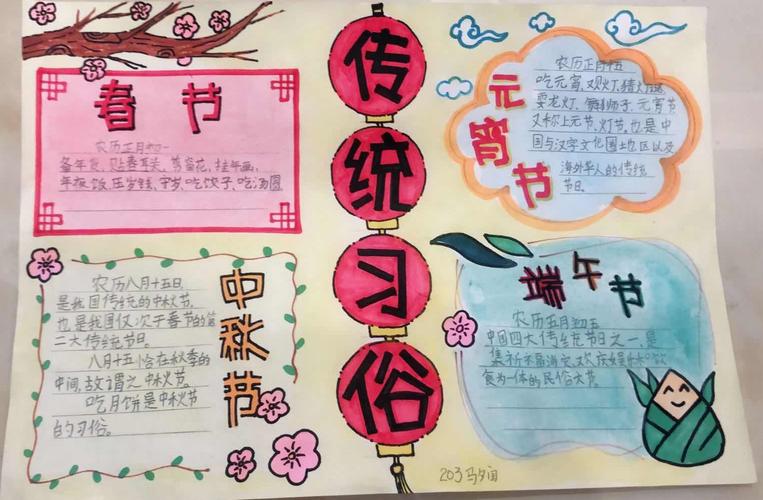 传统习俗
春节
农历正月初一
备年货、贴春联、剪窗花、挂年画、
年夜饭、压岁钱、守岁、吃饺子、吃汤圆
元宵节
农历正月十五
吃元宵、观灯、猜灯谜、
耍龙灯、舞狮子、元宵节
又称上元节、灯节。也是中
国与汉字文化圈土地区以及
海外华人的传统
节日。
中秋节
农历八月十五日,
是我国传统的中秋节,
也是我国仅次于春节的第
二大传统节日。
八月十五恰在秋季的
中间,故谓之中秋节。
吃月饼是中秋节
的习俗。
端午节
农历五月初五
中国四大传统节日之一,是
集祈福消灾、欢庆娱乐和饮
食为一体的民俗大节
203马夕